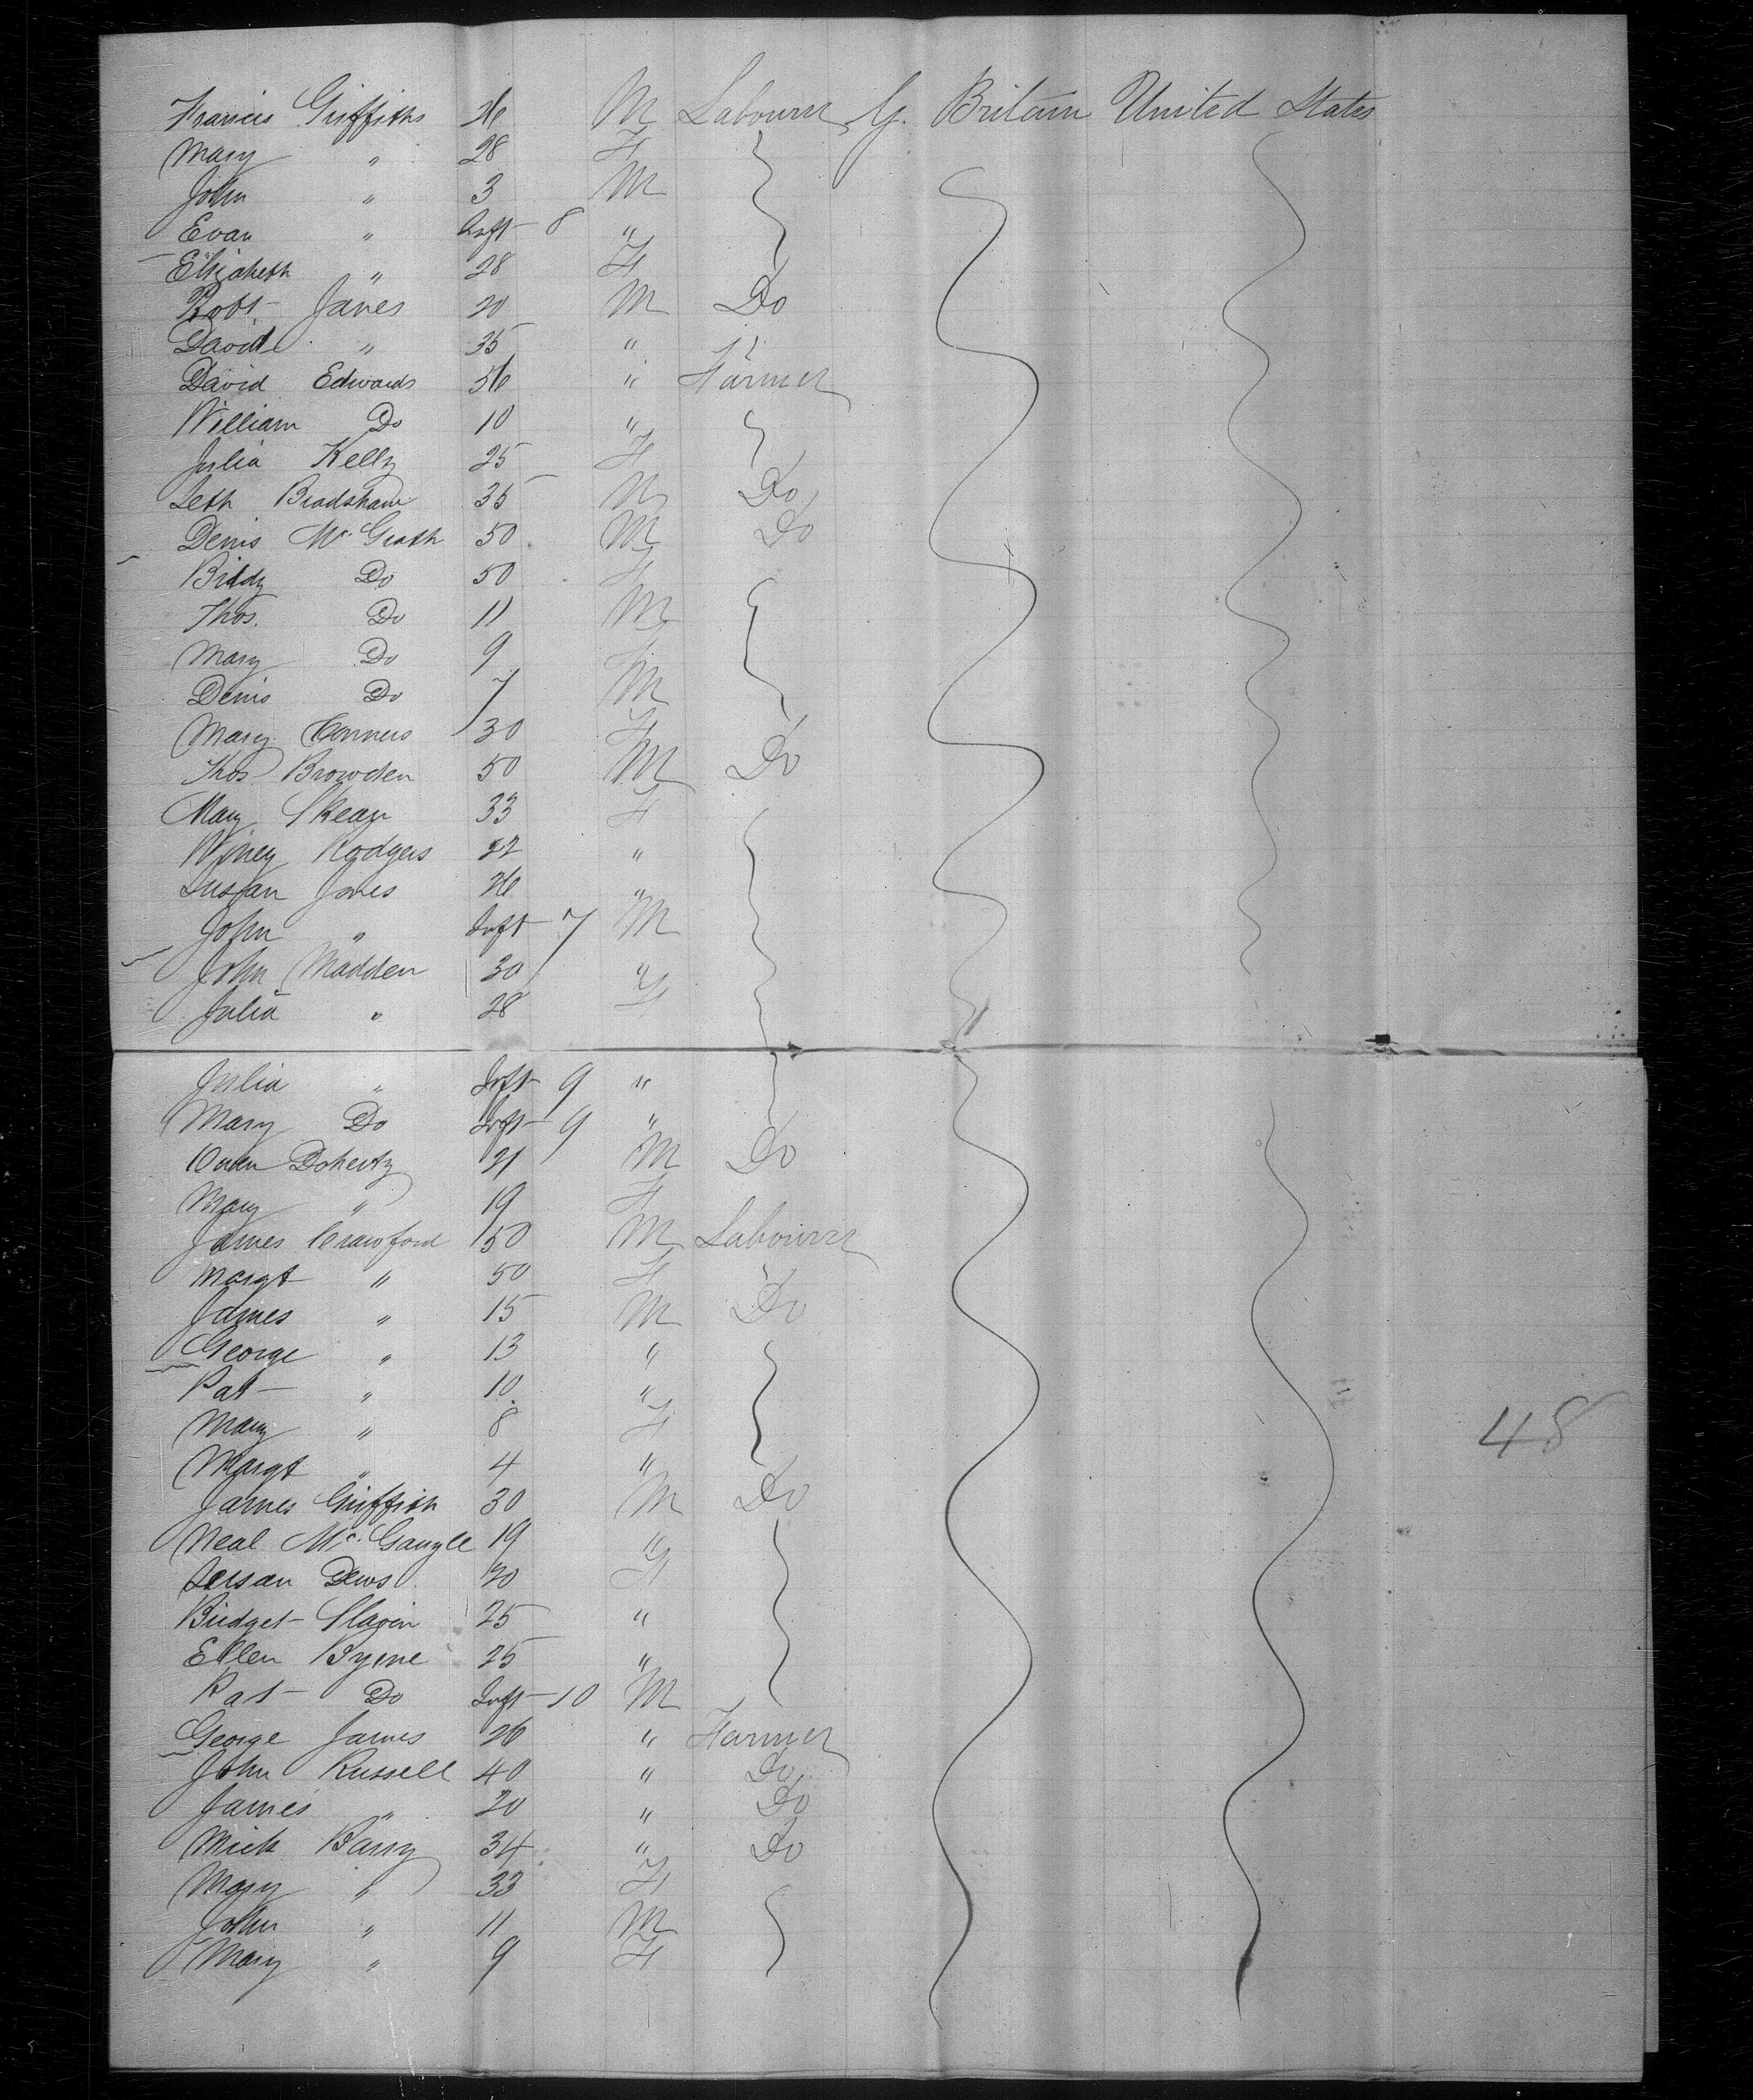 Francis Griffiths 26 M Labourer G. Britain United States
Mary " 28 F
John " 3 M
Evan " Inft 8 "
Elizabeth " 28 F
Robt Jones 20 M Do
David " 35 " "
David Edwards 56 " Farmer
William Do 10 "
Julia Kelly 25 F
Seth Bradshaw 35 M Do
Denis McGrath 50 M Do
Biddy Do 50 F
Thos. Do 11 M
Mary Do 9 F
Denis Do 7 M
Mary Conners 30 F
Thos Browden 50 M Do
Mary Skean 33 F
Winey Rodgers 22 "
Susan Jones 26 "
John " Inft 7 M
John Madden 30 "
Julia " 28 F
Julia " Inft 9 "
Mary Do Inft 9 "
Owen Doherty 21 M Do
Mary " 19 F
James Crawford 50 M Labourer
Margt " 50 F "
James " 15 M Do
George " 13 "
Pat " 10 "
Mary " 8 F
Margt " 4 "
James Griffith 30 M Do
Neal Mc. 19 "
Dews 20 F
Bridget Slavin 25 "
Ellen Byrne 25 "
Pat Do Inft 10 M
George James 26 " Farmer
John Russell 40 " Do
James " 20 " Do
Mick Barry 34 " Do
Mary " 33 F
John " 11 M
Mary " 9 F
48